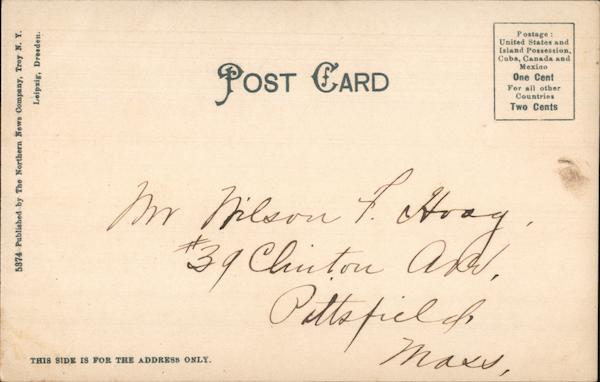 POST CARD
Postage:
United States and
Island Possession,
Cuba, Canada and
Mexico
One Cent
For all other
Countries
Two Cents
5374 Published by The Northern News Company, Troy N. Y.
Leipzig, Dresden.
Mr Wilson F. Hoag,
#39 Clinton Ave,
Pittsfield
Mass,
THIS SIDE IS FOR THE ADDRESS ONLY.